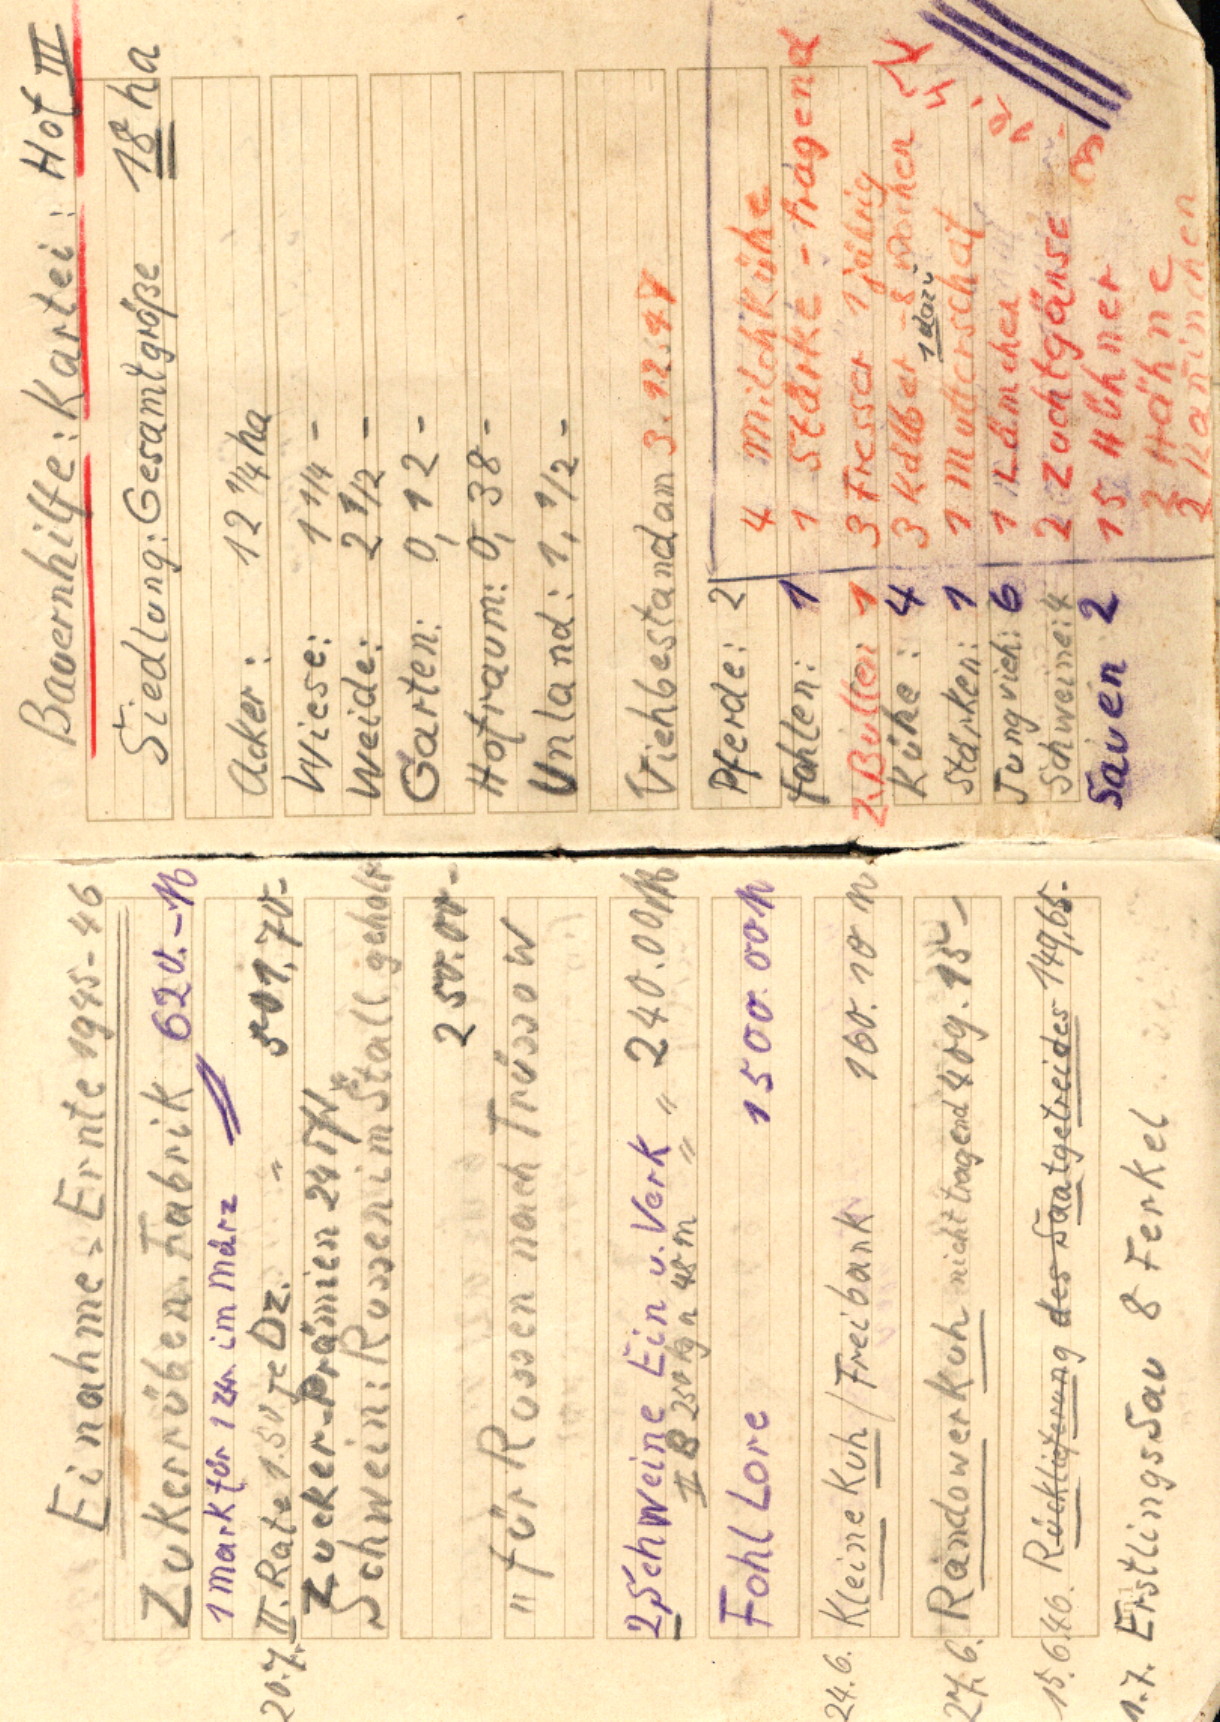 Einahme = Ernte 1945-46
Zukerrüben. Fabrik 620.-M
1 Mark für 1 im März
20.7. II. Rate 1.50 je Dz. " 501,70-
Zucker-Prämien 24
Schwein: Russen im Stall geholt
250.00-
" für Russen nach Trüssow
2 Schweine Ein u. Verk " 240.00 M
B 250 kg "
Fohl Lore 1500.00 M
24.6. Kleine Kuh / Freibank 160.10 M
27.6. Randower Kuh nicht tragend 409.15-
15.6.46. Rücklieferung des Saatgetreides 149,65-
1.7. Erstlings Sau 8 Ferkel
Bauernhilfe: Kartei: Hof III
Siedlung: Gesamtgröße 18 ha
Acker: 12 1/4 ha
Wiese: 1 1/4 -
Weide: 2 1/2 -
Garten: 0,12 -
Hofraum: 0,38 -
Unland: 1,1/2 -
Viehbestand am 3.12.47
Pferde: 2
Fohlen: 1
Z. Bullen 1
Kühe: 4
Stärken: 1
Jungvieh: 6
Schweine: 4
Sauen 2
4 Milchkühe
1 Stärke - tragend
3 Fresser 1 jährig
3 Kälber - 8 Wochen
1 dazu
1 Mutterschaf
1 Lämchen
2 Zuchtgänse
15 Hühner
2 Hähne
Kaninchen